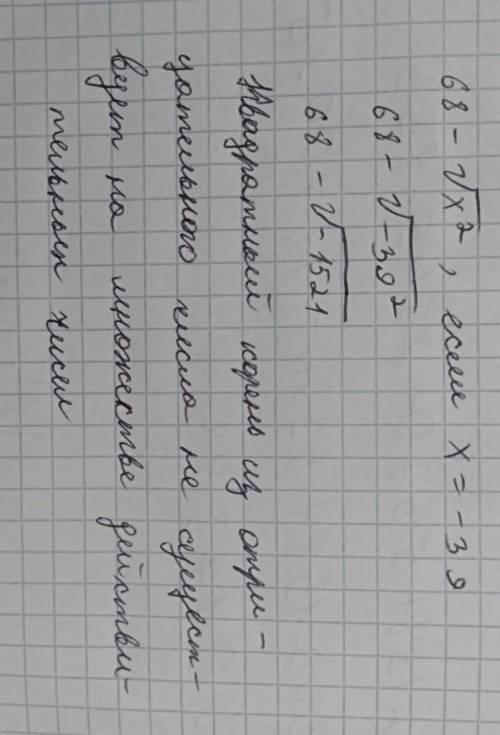 68 - √x², если x = -39
68 - √-39²
68 - √-1521
Квадратный корень из отри-
цательного числа не сущест-
вует на множестве действи-
тельных чисел